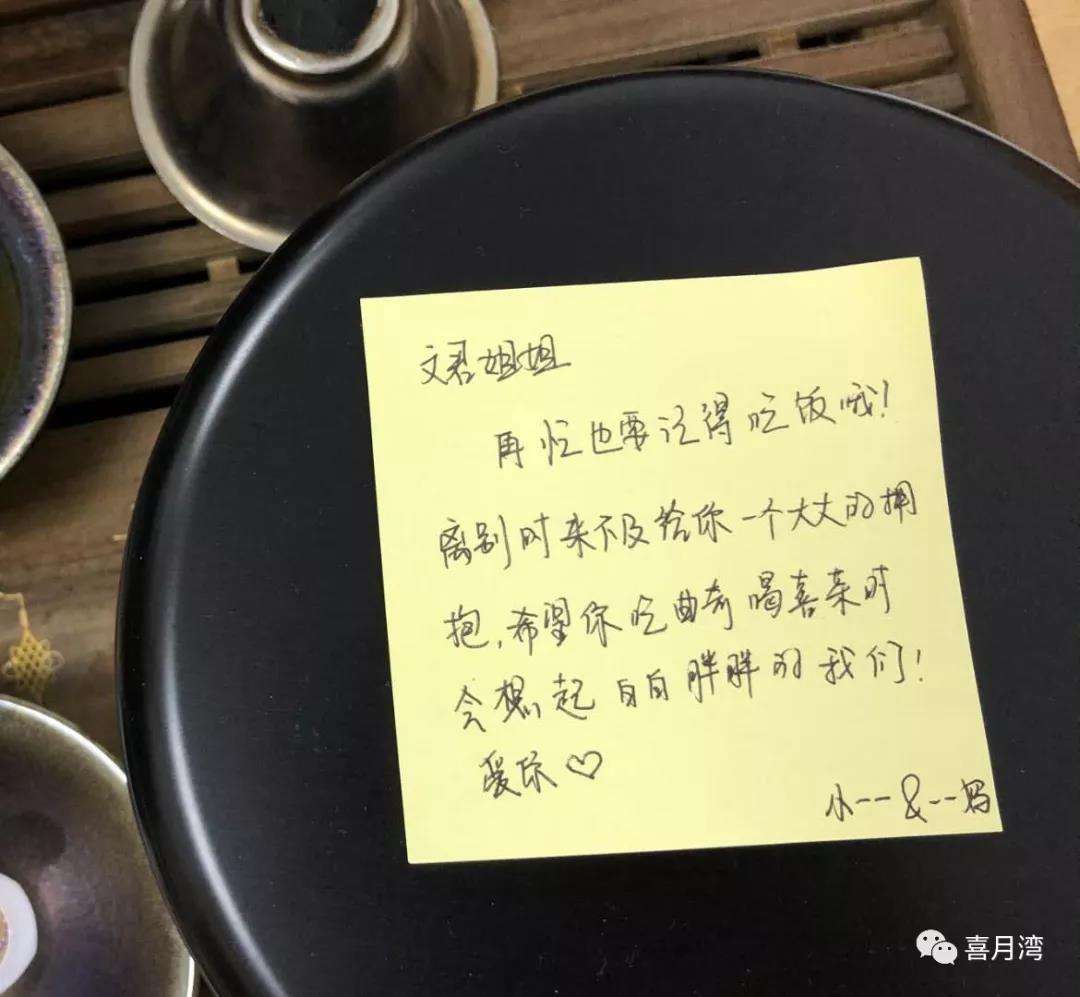 文君姐姐
再忙也要记得吃饭哦!
离别时来不及给你一个大大的拥
抱,希望你吃曲奇喝喜茶时
会想起白白胖胖的我们!
爱你♡
小一一&一一妈
喜月湾